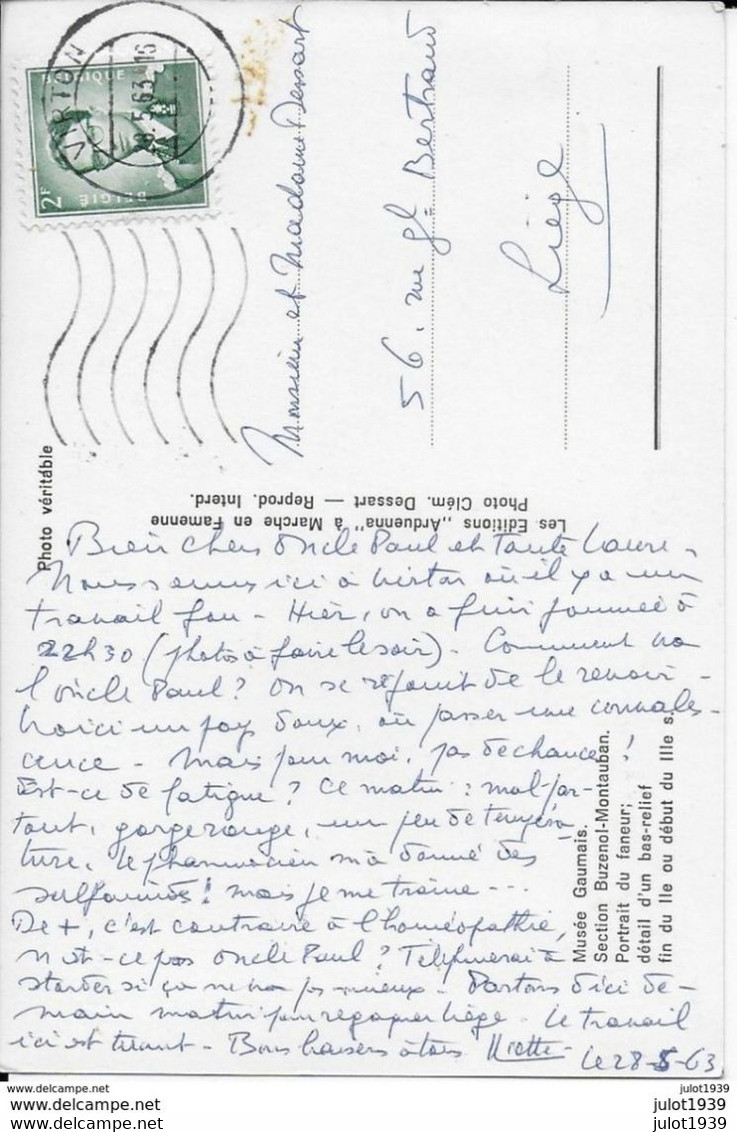 VIRTON
28.5.63 16
BELGIQUE
BELGIË
2F
Monsieur et Madame Dessart
56, rue Gl Bertrand
Liège
Photo véritable
Les Editions „Arduenna" à Marche en Famenne
Photo Clém. Dessart — Reprod. Interd.
Musée Gaumais.
Section Buzenol-Montauban.
Portrait du faneur;
détail d'un bas-relief
fin du IIe ou début du IIIe s.
Bien chers Oncle Paul et Tante Laure,
Nous sommes ici à Virton où il y a un
travail fou - Hier, on a fini journée à
22h30 (photos à faire le soir). Comment va
l'oncle Paul? On se réjouit de le revoir -
Voici un pays doux, où passer une convales-
cence - Mais pour moi, pas de chance!
Est-ce de fatigue? Ce matin: mal par-
tout, gorge rouge, un peu de tempéra-
ture. Le pharmacien m'a donné des
sulfamidés! mais je me traîne ---
De +, c'est contraire à l'homéopathie,
n'est-ce pas Oncle Paul? Téléphonerai à
si ça ne va pas mieux - Partons d'ici de-
main matin pour regagner Liège - Le travail
ici est tuant - Bons baisers à tous
Le 28-5-63
julot1939
julot1939
julot1939